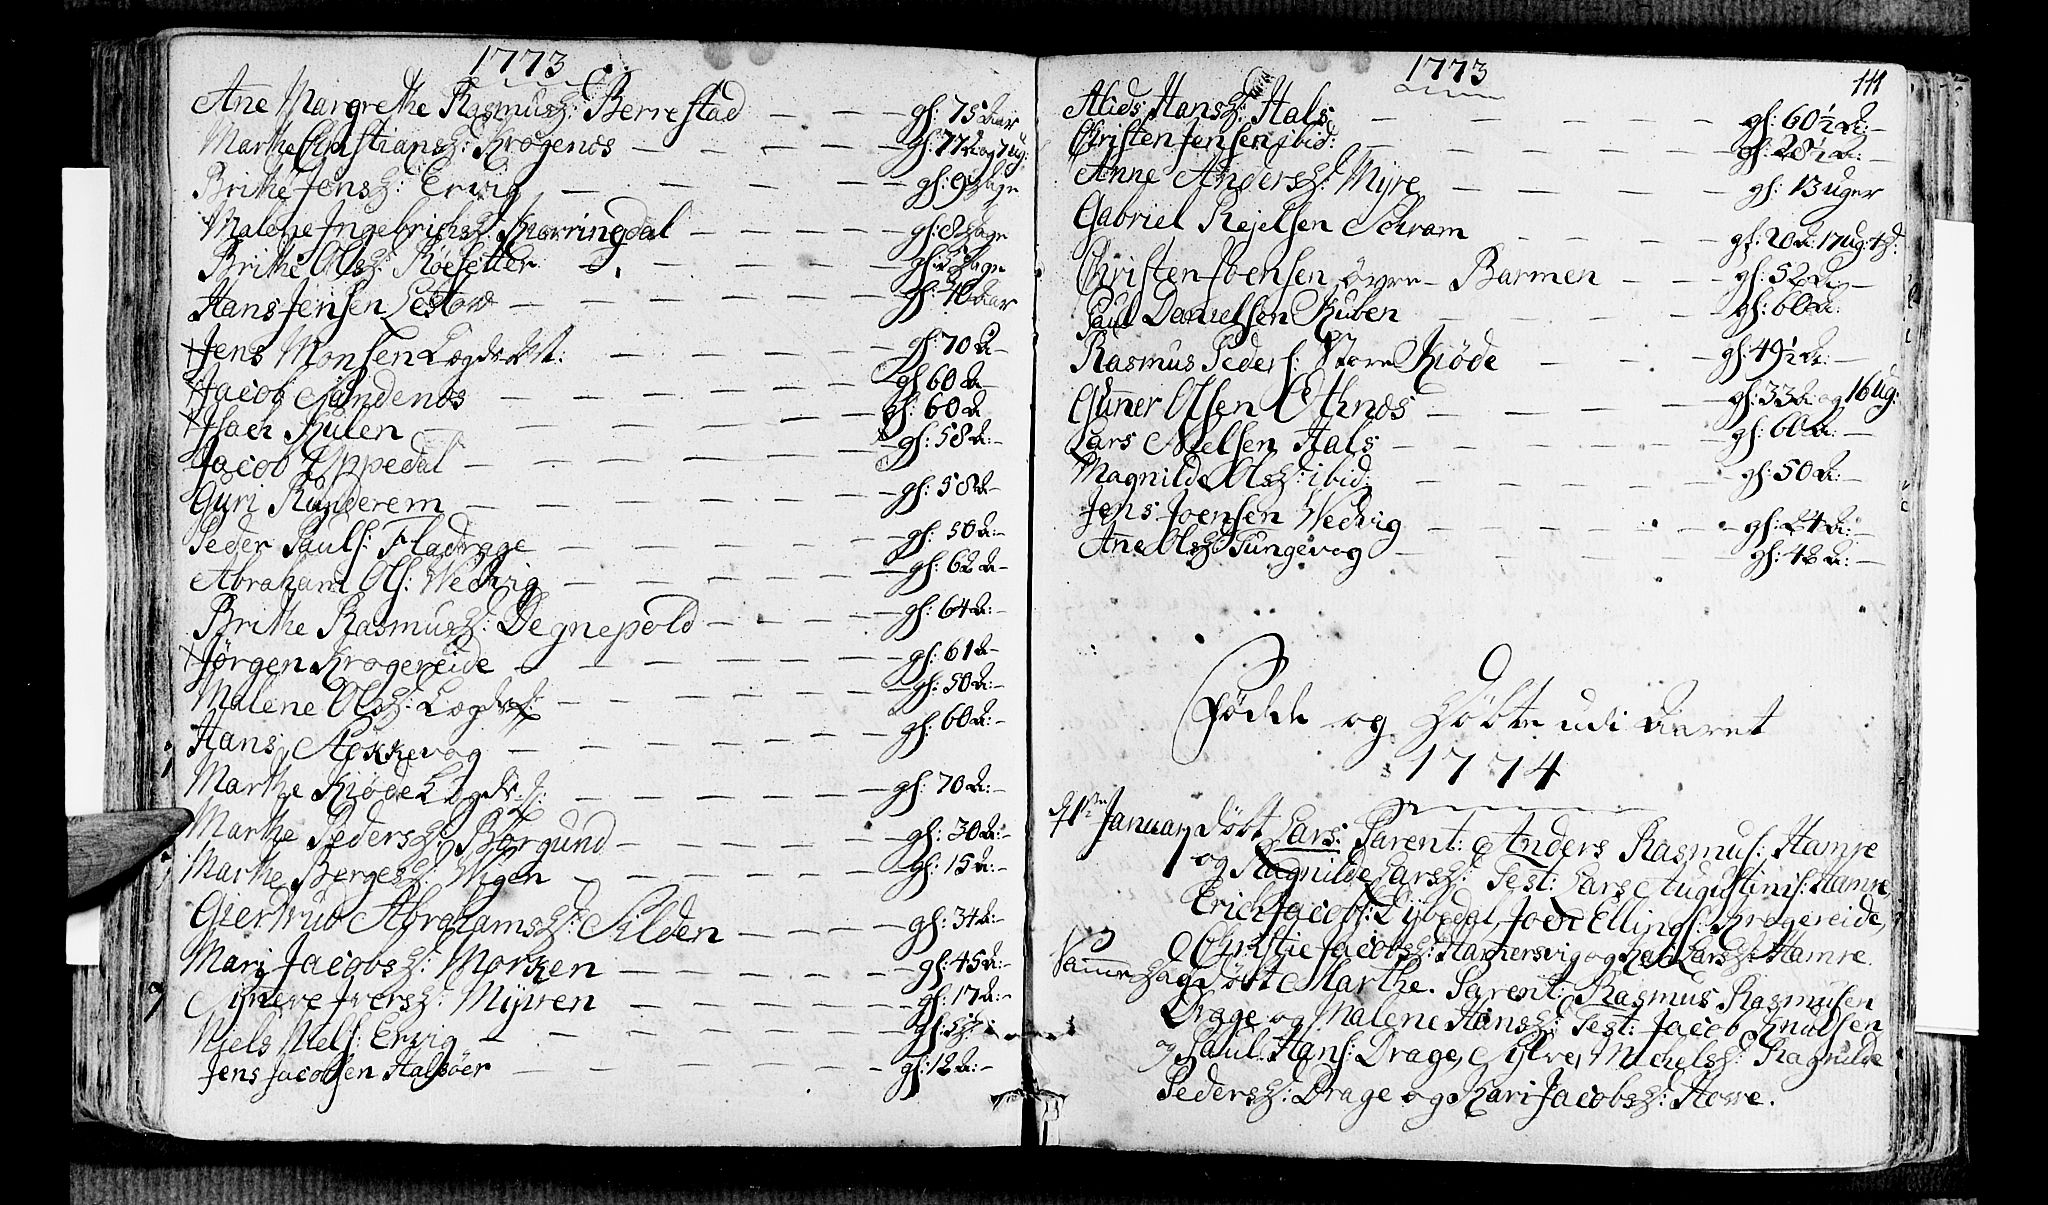 1773
Ane Margrethe Rasmusd: Berrestad — — — gl: 75 Aar
Marthe Christiansd: Krogenæs — — — gl: 77 A og 7 ug:
Brithe Jensd: Ervig — — — gl: 9 Dage
Malene Ingebrichsd: Skorringdal — — — gl: 8 Dage
Brithe Olsd: Røesetter — — — gl: Dage
Hans Jensen Lestow — — — gl: 70 Aar
Jens Monsen Lægdslt: — — — gl: 70 A
Jacob Sandenæs — — — gl 60 A
Isach Kulen — — — gl: 60 A
Jacob Yppedal — — — gl: 58 A:
Guri Runderem — — — gl: 58 A
Peder Pauls: Fladrage — — — gl: 50 A:
Abraham Ols: Wedvig — — — gl: 62 A
Brithe Rasmusd: Degnepold — — — gl: 64 A:
Jørgen Krogereide — — — gl: 61 A
Malene Olsd: Lægdsl: — — — gl: 50 A:
Hans Nekkevog — — — gl: 60 A:
Marthe Kiøde Lægds. l: — — — gl: 70 A:
Marthe Pedersd: Borgund — — — gl: 30 A:
Marthe Bergesd: Wigen — — — gl: 15 A:
Giertrud Abrahamsd: Silden — — — gl: 34 A:
Mari Jacobsd: Morken — — — gl: 45 A:
Syneve Iversd: Myren — — — gl: 17 A:
Niels Niels: Ervig — — — gl: 5 D:
Jens Jacobsen Halsøer — — — gl: 12 A:
1773
111
Alids Hansd: Hals — — — gl: 60 1/2 A:
Christen Jensen ibid: — — — gl: 28 1/2 A:
Anne Andersd: Myre — — — gl: 13 uger
Gabriel Rejelsen Schram — — — gl: 20 A: 17 ug: 4 d:
Christen Joensen øvre Barmen — — — gl: 52 A
Paul Danielsen Kuben — — — gl: 60 A:
Rasmus Peders: Store Kiøde — — — gl: 49 1/2 A:
Guner Olsen Othnæs — — — gl: 33 A og 16 ug:
Lars Nielsen Hals — — — gl: 60 A:
Magnilde Olsd: ibid: — — — gl: 50 A:
Jens Joensen Wedvig — — — gl: 24 A:
Ane Olsd: Tungevog — — — gl: 48 A:
Fødde og Døbte udi Aaret
1774
d 1ste Januarij døbt Lars: Parent: Anders Rasmus: Hamre
og Ragnilde Larsd: Test: Lars Augustinis: Hamre,
Erich Jacobs: Dybedal, Joen Ellings: Krogereide,
Christie Jacobsd: Hamersvig og Larsd: Hamre.
Samme Dag døbt Marthe. Parent: Rasmus Rasmusen
Drage og Malene Hansd: Test: Jacob Knudsen
og Paul Hans: Drage, Sylve, Michelsd: Ragnilde
Pedersd: Drage og Kari Jacobsd: Howe.